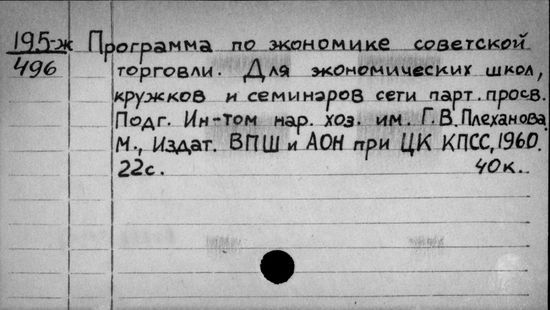 195-ж Программа по экономике советской
496 торговли. Для экономических школ,
кружков и семинаров сети парт. просв.
Подг. Ин-том нар. хоз. им. Г.В.Плеханова
М., Издат. ВПШ и АОН при ЦК КПСС, 1960.
22с. 40к.